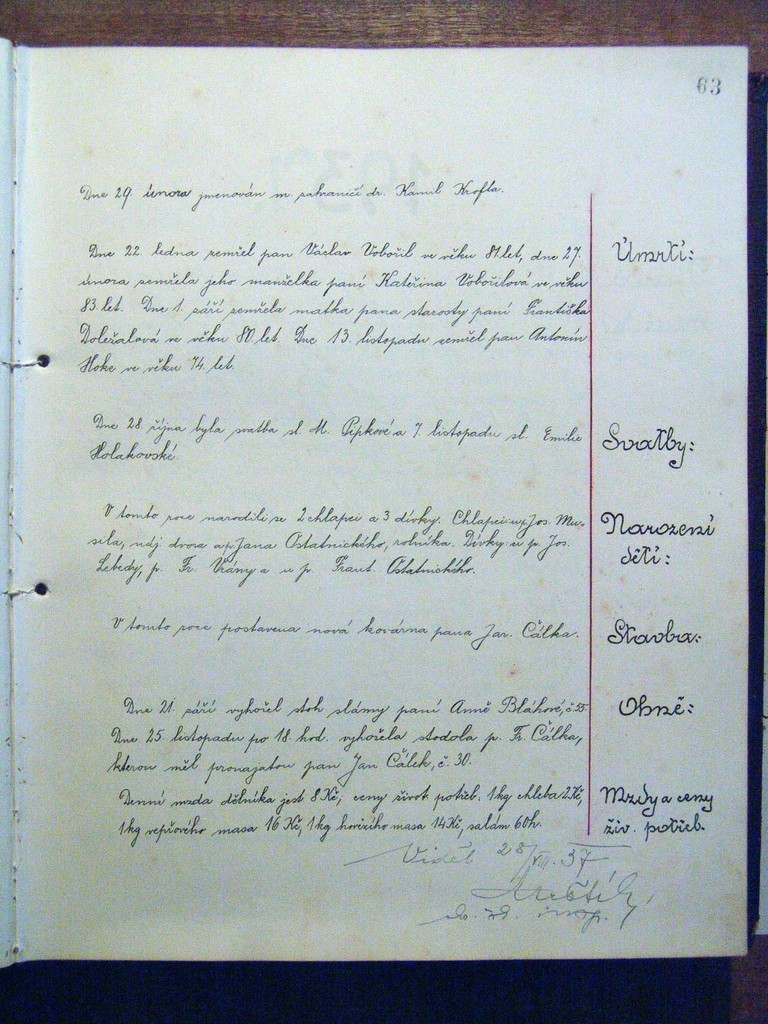 63
Dne 29. února jmenován m. zahraničí dr. Kamil Krofta.
Úmrtí:
Dne 22. ledna zemřel pan Václav Vobořil ve věku 81 let, dne 27.
února zemřela jeho manželka paní Kateřina Vobořilová ve věku
83 let. Dne 1. září zemřela matka pana starosty paní Františka
Doležalová ve věku 80 let. Dne 13. listopadu zemřel pan Antonín
Hoke ve věku 74 let.
Svatby:
Dne 28. října byla svatba sl. M. Pipkové a 7. listopadu sl. Emilie
Holakovské.
Narození
dětí:
V tomto roce narodili se 2 chlapci a 3 dívky. Chlapci: u p. Jos. Mu-
sila, ndj. dvora a p. Jana Ostatnického, rolníka. Dívky: u p. Jos.
Lebedy, p. Fr. Vrány a u p. Frant. Ostatnického.
Stavba:
V tomto roce postavena nová kovárna pana Jar. Čálka.
Ohně:
Dne 21. září vyhořel stoh slámy paní Anně Bláhové, č. 55.
Dne 25. listopadu po 18. hod. vyhořela stodola p. Fr. Čálka,
kterou měl pronajatou pan Jan Čálek, č. 30.
Mzdy a ceny
živ. potřeb.
Denní mzda dělníka jest 8 Kč, ceny život. potřeb: 1 kg chleba 2 Kč,
1 kg vepřového masa 16 Kč, 1 kg hovězího masa 14 Kč, salám 60 h.
Viděl 28/VIII. 37